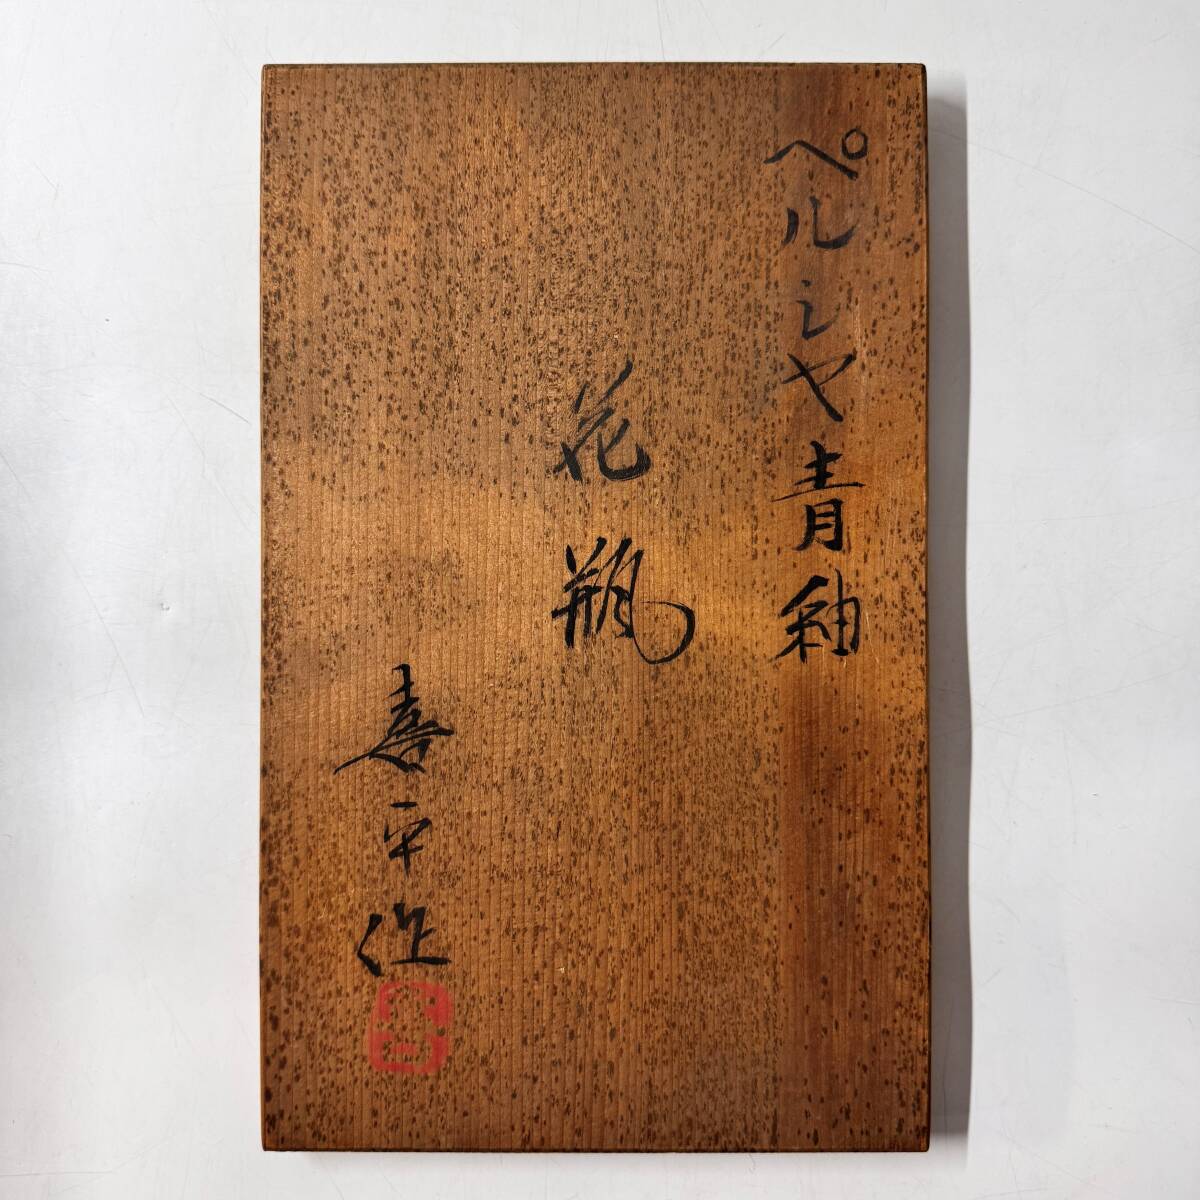 ペルシヤ青釉
花瓶
喜平作